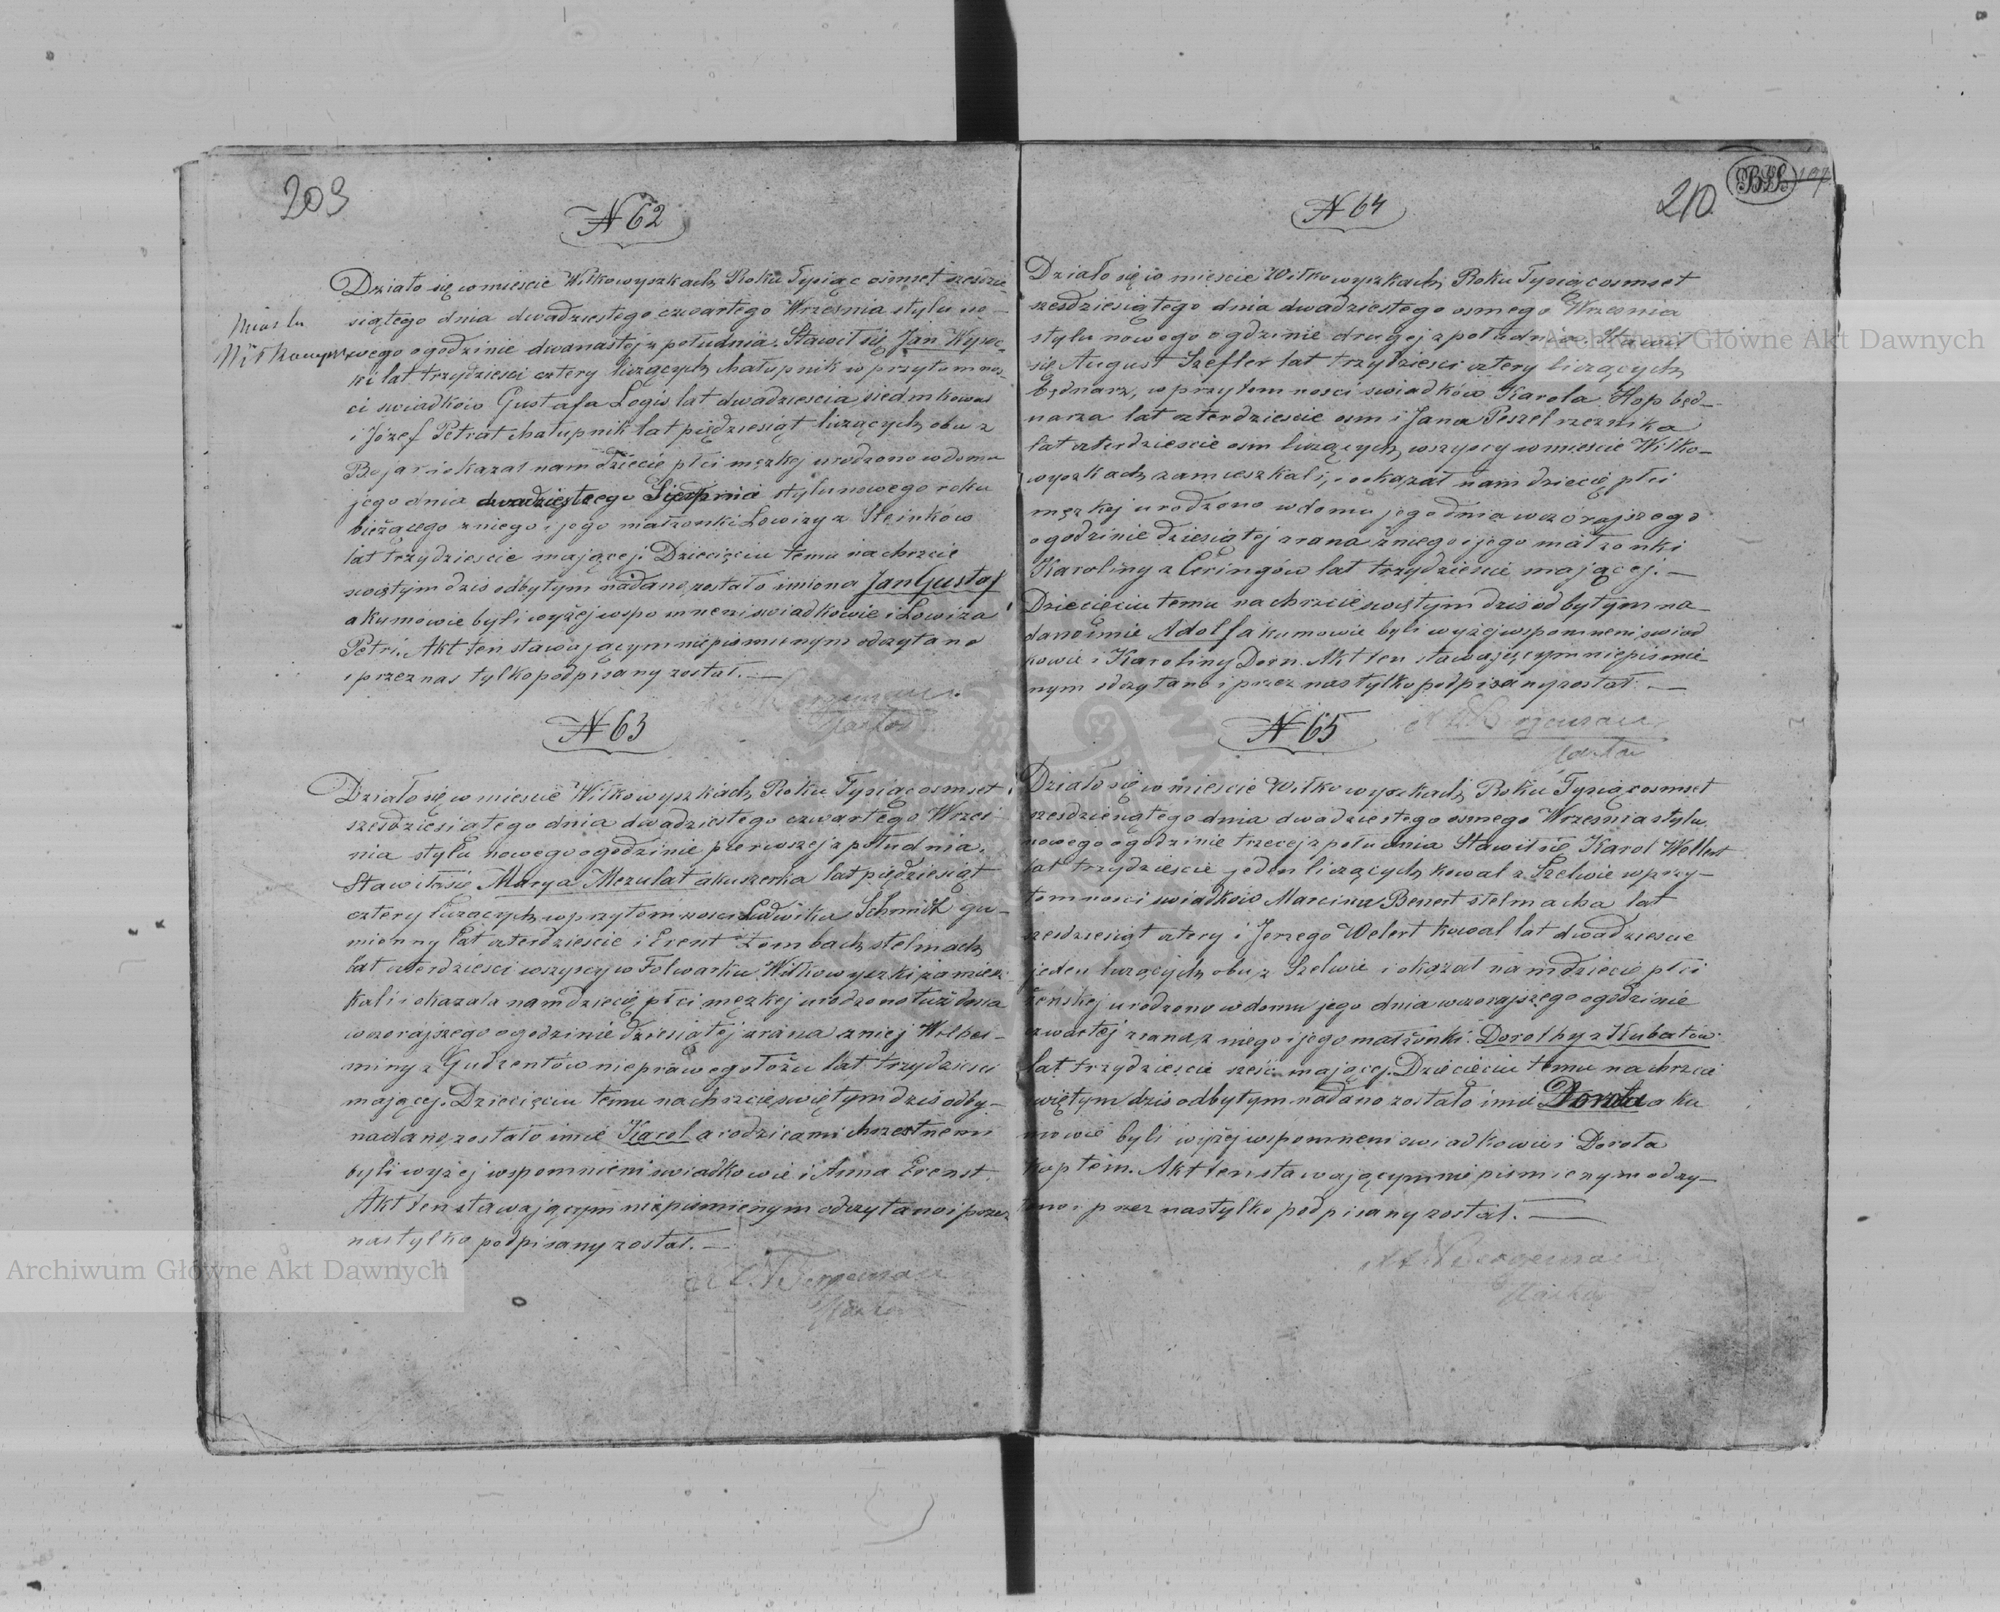 209
N 62
Miasta
Wiłkowyszk
Działo się w mieście Wiłkowyszkach, Roku Tysiąc osmset szesdzie-
siątego dnia dwadziestego czwartego Września stylu no-
wego o godzinie dwanastej z południa. Stawił się Jan Wysoc-
ki lat trzydzieści cztery liczących chałupnik w przytomnos-
ci swiadków Gustafa Logis lat dwadzieścia siedm
i Józef Petrat chałupnik lat pięдziesiąt liczących, obu z
Bojar i okazał nam dziecie płci męzkej urodzono w domu
jego dnia dwadziestego Sierpnia stylu nowego roku
bieżącego z niego i jego małżonki Lowizy z Steinków
lat trzydzieście mającej. Dziecięciu temu na chrzcie
swiętym dzis odbytym nadane zostało imiona Jan Gustaf
a kumowie byli wyżej wspomneni swiadkowie i Lowiza
Petri. Akt ten stawającym niepismennym odczytano
i przez nas tylko podpisany został. —
N 63
Działo się w miescie Wiłkowyszkiach, Roku Tysiąc osmset
szesdziesiątego dnia dwadziestego czwartego Wrześ
nia stylu nowego o godzinie pierwszej z południa.
Stawiłasię Marya Mezulat akuszerka lat pięдziesiąt
cztery liczacych w przytomnosci Ludwika Schmidt gu-
mienny lat czterdzieście i Erent Lombach stelmach
lat czterdzieści wszyscy w Folwarku Wiłkowyszki zamiesz
kali i okazała nam dziecię płci męzkej urodzono tuż dnia
wczorajszego o godzinie dziesiątej zrana z niej Wilhel-
miny z Gudzentów nieprawego łożu lat trzydzieści
mającej. Dziecięciu temu na chrzcie swiętym dzis odby-
nadano zostało imie Karol a rodzicami chrzestnemi
byli wyżej wspomnieni swiadkowie i Anna Erenst.
Akt ten stawającym niepismienym odczytano i przez
nas tylko podpisany został. —
210
N 64
Działo się w mieście Wiłkowyszkach, Roku Tysiąc osmset
szesdziesiątego dnia dwadziestego osmego Września
stylu nowego o gdzinie drugej z południa Stawił
się August Szefler lat trzydzieści cztery liczących,
bednarz, w przytomnosci swiadków Karola Hop bed-
narza lat czterdzieście osm i Jana Peszel rzeznika
lat czterdzieście osm liczących, wszyscy w mieście Wiłko-
wyszkach zamieszkali, i okazał nam dziecię płci
męzkej urodzono w domu jego dnia wczorajszego
o godzinie dziesiątej zrana z niego i jego małżonki
Karoliny z Ceringów lat trzydzieście mającej. —
Dziecięciu temu na chrzcie swiętym dzis odbytym na-
dano imie Adolf a kumowie byli wyżej wspomneni swiad
kowie i Karoliny Dorn. Akt ten stawającym niepismie
nym odczytano i przez nas tylko podpisany został. —
N 65
Działo się w mieście Wiłkowyszkach, Roku Tysiąc osmset
szesdziesiątego dnia dwadziestego osmego Września stylu
nowego o godzinie trzecej z południa Stawił się Karol Wellert
lat trzydzieście jeden liczących kowal z Szelwie w przy-
tomnosci swiadków Marcina Benert stelmacha lat
szesdziesiąt cztery i Jerzego Welert kowal lat dwadzieście
jeden liczących, obu z Szelwie i okazał nam dziecię płci
żeńskej urodzono w domu jego dnia wczorajszego o godzinie
czwartej zrana z niego i jego małżonki Dorothy z Kubatów
lat trzydzieście sześć mającej. Dziecięciu temu na chrzcie
swiętym dzis odbytym nadano zostało imie Dorota a ku
mowie byli wyżej wspomneni swiadkowie i Dorota
Kaptein. Akt ten stawającym niepismienym odczy-
tano i przez nas tylko podpisany został. —
Archiwum Główne Akt Dawnych
Archiwum Główne Akt Dawnych